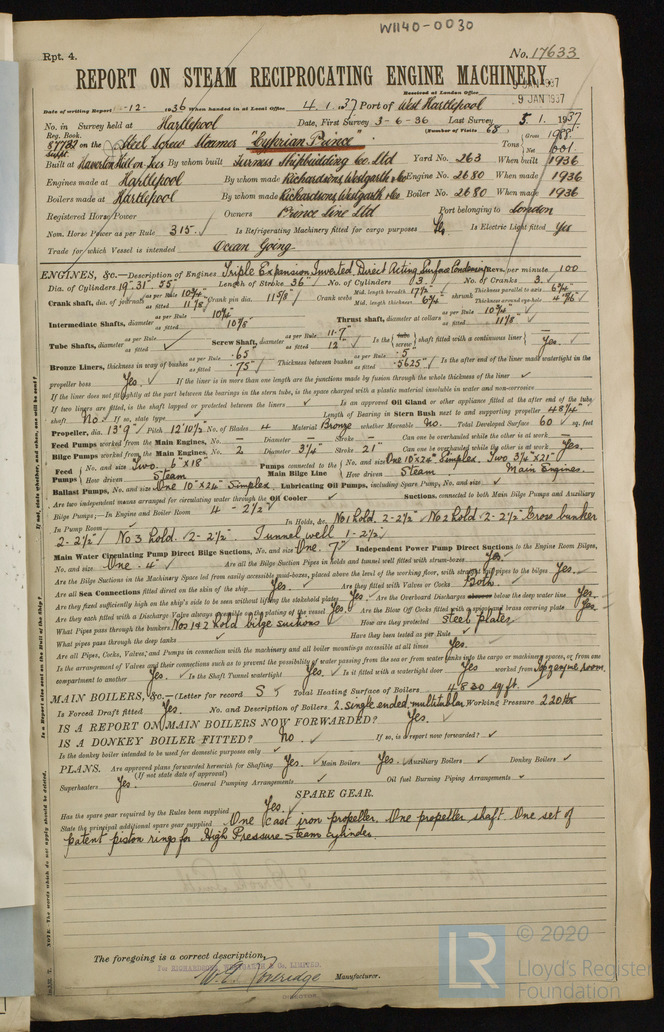 W1140-0030
Rpt. 4.
No. 17633
REPORT ON STEAM RECIPROCATING ENGINE MACHINERY.
Received at London Office
9 JAN 1937
Date of writing Report -12- 1936 When handed in at Local Office 4.1.1937 Port of West Hartlepool
No. in Survey held at Hartlepool Date, First Survey 3-6-36 Last Survey 5.1.1937
Reg. Book. (Number of Visits 68)
87782 on the Steel Screw Steamer "Cyprian Prince" Tons Gross 1988 Net
Built at Haverton Hill on Tees By whom built Furness Shipbuilding Co. Ltd Yard No. 263 When built 1936
Engines made at Hartlepool By whom made Richardsons, Westgarth & Co Engine No. 2680 When made 1936
Boilers made at Hartlepool By whom made Richardsons, Westgarth & Co Boiler No. 2680 When made 1936
Registered Horse Power Owners Prince Line Ltd Port belonging to London
Nom. Horse Power as per Rule 315. Is Refrigerating Machinery fitted for cargo purposes No Is Electric Light fitted Yes
Trade for which Vessel is intended Ocean Going.
ENGINES, &c.—Description of Engines Triple Expansion Inverted Direct Acting Surface Condensing Revs. per minute 100
Dia. of Cylinders 19" 31" 55" Length of Stroke 36" No. of Cylinders 3 No. of Cranks 3.
Crank shaft, dia. of journals as per Rule 10 3/4" as fitted 11 1/8" Crank pin dia. 11 5/8" Crank webs Mid. length breadth 17 1/2" Mid. length thickness 6 3/4" shrunk Thickness parallel to axis 6 3/4" Thickness around eye-hole 4 15/16"
Intermediate Shafts, diameter as per Rule 10 1/4" as fitted 10 5/8" Thrust shaft, diameter at collars as per Rule 10 3/4" as fitted 11 1/8"
Tube Shafts, diameter as per Rule as fitted Screw Shaft, diameter as per Rule 11.7" as fitted 12" Is the tube screw shaft fitted with a continuous liner Yes.
Bronze Liners, thickness in way of bushes as per Rule .65 as fitted .75" Thickness between bushes as per Rule .5 as fitted .5625" Is the after end of the liner made watertight in the
propeller boss Yes. If the liner is in more than one length are the junctions made by fusion through the whole thickness of the liner
If the liner does not fit tightly at the part between the bearings in the stern tube, is the space charged with a plastic material insoluble in water and non-corrosive
If two liners are fitted, is the shaft lapped or protected between the liners Is an approved Oil Gland or other appliance fitted at the after end of the tube
shaft No If so, state type Length of Bearing in Stern Bush next to and supporting propeller 48 1/4"
Propeller, dia. 13' 9" Pitch 12' 10 1/2" No. of Blades 4 Material Bronze whether Moveable No. Total Developed Surface 60 sq. feet
Feed Pumps worked from the Main Engines, No. — Diameter — Stroke — Can one be overhauled while the other is at work —
Bilge Pumps worked from the Main Engines, No. 2 Diameter 3 3/4" Stroke 21" Can one be overhauled while the other is at work Yes.
Feed Pumps No. and size Two. 6" x 18" Pumps connected to the Main Bilge Line No. and size One 10"x24" Simplex. Two 3 3/4" x 21"
How driven Steam How driven Steam Main Engines.
Ballast Pumps, No. and size One 10" x 24" Simplex. Lubricating Oil Pumps, including Spare Pump, No. and size
Are two independent means arranged for circulating water through the Oil Cooler Suctions, connected to both Main Bilge Pumps and Auxiliary
Bilge Pumps;—In Engine and Boiler Room 4 - 2 1/2"
In Pump Room In Holds, &c. No 1 hold. 2-2 1/2" No 2 hold. 2-2 1/2" Cross bunker
2-2 1/2" No 3 hold. 2-2 1/2". Tunnel well 1-2 1/2"
Main Water Circulating Pump Direct Bilge Suctions, No. and size One. 7" Independent Power Pump Direct Suctions to the Engine Room Bilges,
No. and size One. 4" Are all the Bilge Suction Pipes in holds and tunnel well fitted with strum-boxes Yes.
Are the Bilge Suctions in the Machinery Space led from easily accessible mud-boxes, placed above the level of the working floor, with straight tail pipes to the bilges Yes.
Are all Sea Connections fitted direct on the skin of the ship Yes. Are they fitted with Valves or Cocks Both
Are they fixed sufficiently high on the ship's side to be seen without lifting the stokehold plates Yes. Are the Overboard Discharges above or below the deep water line Yes.
Are they each fitted with a Discharge Valve always accessible on the plating of the vessel Yes. Are the Blow Off Cocks fitted with a spigot and brass covering plate Yes.
What Pipes pass through the bunkers Nos 1 & 2 hold bilge suctions How are they protected Steel plates
What pipes pass through the deep tanks Have they been tested as per Rule
Are all Pipes, Cocks, Valves, and Pumps in connection with the machinery and all boiler mountings accessible at all times Yes.
Is the arrangement of Valves and their connections such as to prevent the possibility of water passing from the sea or from water tanks into the cargo or machinery spaces, or from one
compartment to another Yes. Is the Shaft Tunnel watertight Yes. Is it fitted with a watertight door Yes worked from Top engine room.
MAIN BOILERS, &c.—(Letter for record S) Total Heating Surface of Boilers 4830 sq. ft.
Is Forced Draft fitted Yes. No. and Description of Boilers 2. single ended multitubular Working Pressure 220 lbs
IS A REPORT ON MAIN BOILERS NOW FORWARDED? Yes.
IS A DONKEY BOILER FITTED? No. If so, is a report now forwarded?
Is the donkey boiler intended to be used for domestic purposes only
PLANS. Are approved plans forwarded herewith for Shafting Yes. Main Boilers Yes. Auxiliary Boilers Donkey Boilers
(If not state date of approval)
Superheaters Yes. General Pumping Arrangements Oil fuel Burning Piping Arrangements
SPARE GEAR.
Has the spare gear required by the Rules been supplied Yes.
State the principal additional spare gear supplied One cast iron propeller. One propeller shaft. One set of
patent piston rings for High Pressure steam cylinder.
The foregoing is a correct description,
For RICHARDSONS, WESTGARTH & Co. LIMITED.
Manufacturer.
LR © 2020
Lloyd's Register
Foundation